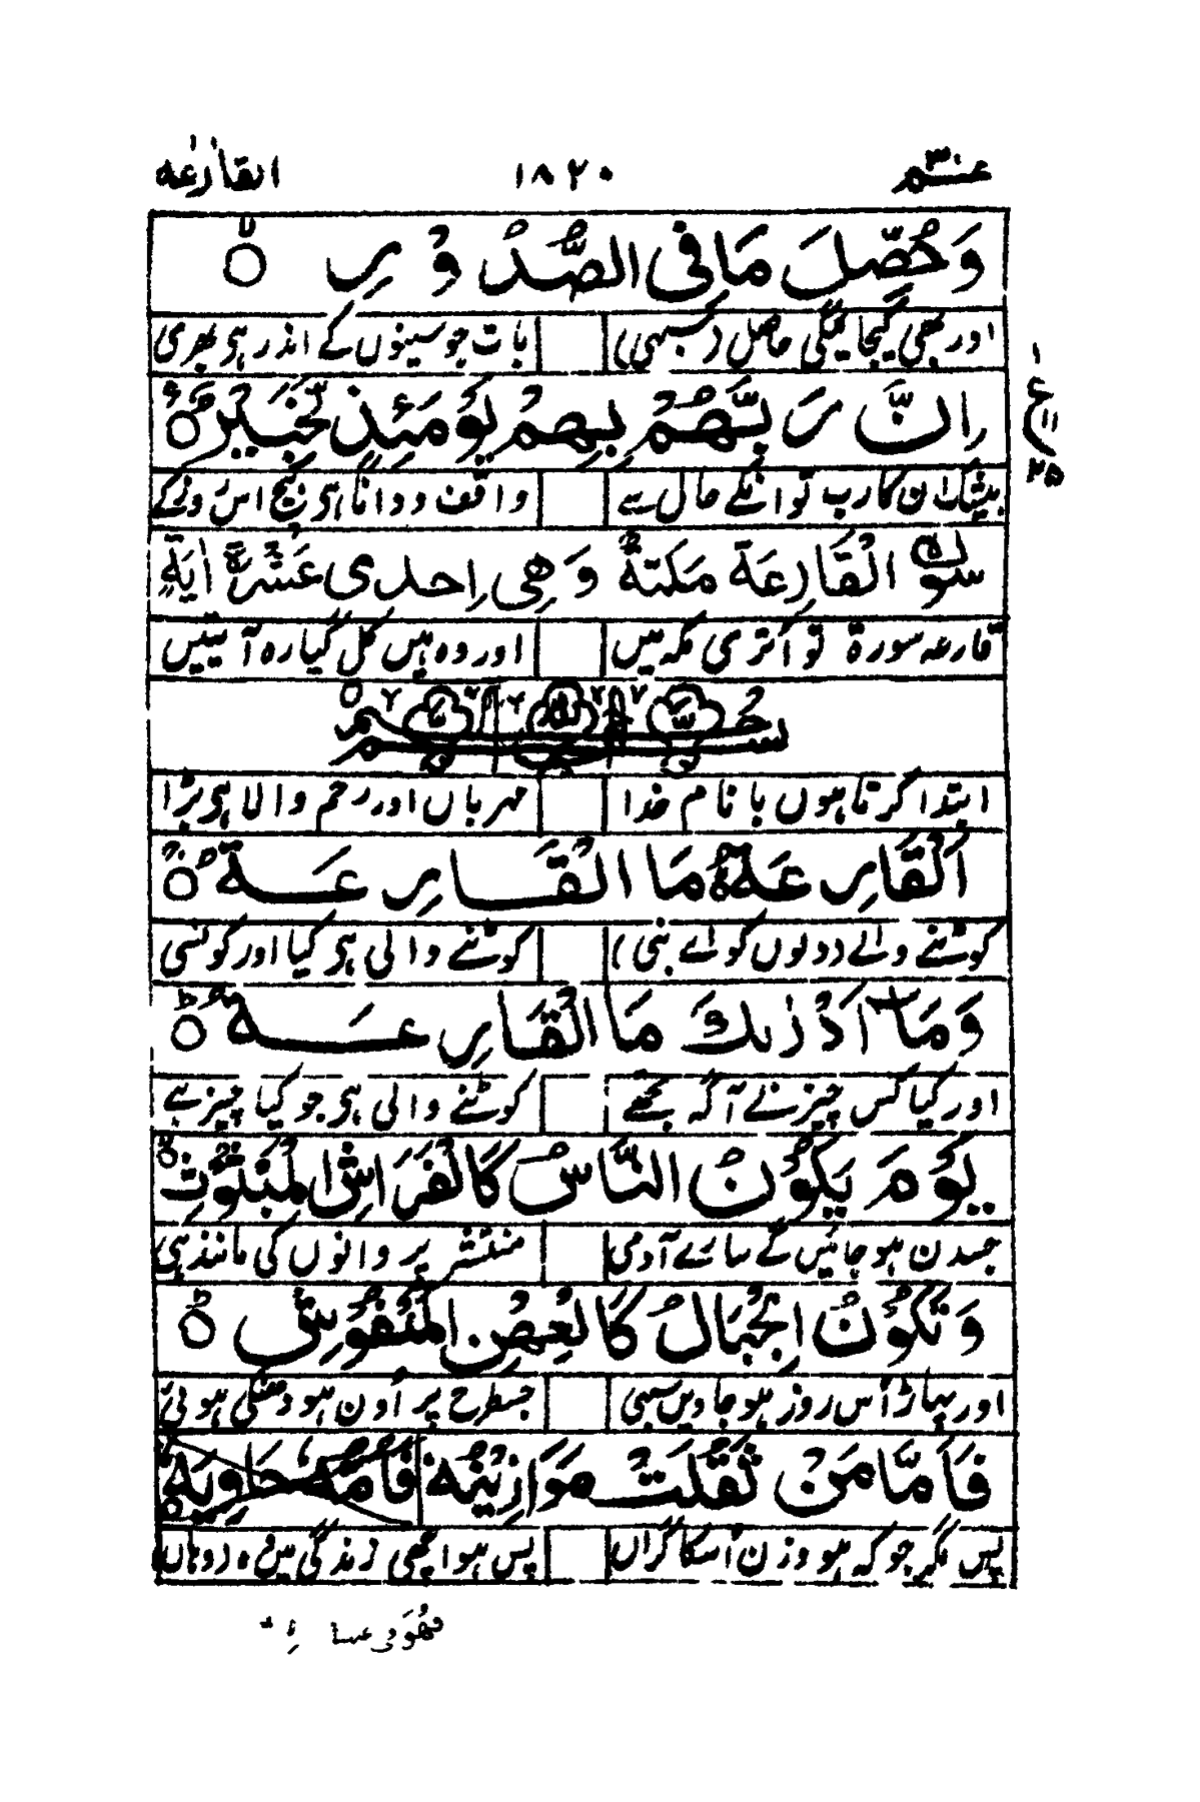 عمّ ١٨٢٠ القارعة
وَحُصِّلَ مَا فِی الصُّدُوْرِ ۙ
اور بھی کیجائیگی حاصل (سبھی) بات جو سینوں کے اندر ہی بھری
اِنَّ رَبَّهُمْ بِهِمْ یَوْمَئِذٍ لَّخَبِیْرٌ
١ ع ١١ ٢٥
بیشک ان کا رب تو انکے حال سے واقف و دانا ہی اس روز کے
سورة الْقَارِعَة مَكیّةٌ وَهِیَ اِحدٰی عَشْرَةَ اٰیَةً
قارعہ سورة تو اُتری مکہ میں اور وہ ہیں کل گیارہ آیتیں
بِسْمِ اللّٰهِ الرَّحْمٰنِ الرَّحِیْمِ
ابتدا کرتا ہوں با نام خدا مہرباں اور رحم والا ہی بڑا
اَلْقَارِعَةُ مَا الْقَارِعَةُ
کوٹنے والے (دلوں کو اے بنی) کوٹنے والی ہی کیا اور کونسی
وَمَآ اَدْرٰىكَ مَا الْقَارِعَةُ
اور کیا کس چیز نے آگہ تجھے کوٹنے والی ہی جو کیا چیز ہے
یَوْمَ یَكُوْنُ النَّاسُ كَالْفَرَاشِ الْمَبْثُوْثِ
جسدن ہو جائیں گے سارے آدمی منتشر پروانوں کی مانند ہی
وَتَكُوْنُ الْجِبَالُ كَالْعِهْنِ الْمَنْفُوْشِ
اور پہاڑ اُس روز ہو جاویں سبھی جسطرح پر اُون ہو دھنکی ہوئی
فَاَمَّا مَنْ ثَقُلَتْ مَوَازِیْنُهٗ فَاُمُّهٗ هَاوِیَةٌ
پس مگر جو کہ ہو وزن اُسکا گراں پس ہو اچھی زندگی میں وہ وہاں
فَهُوَ فِی